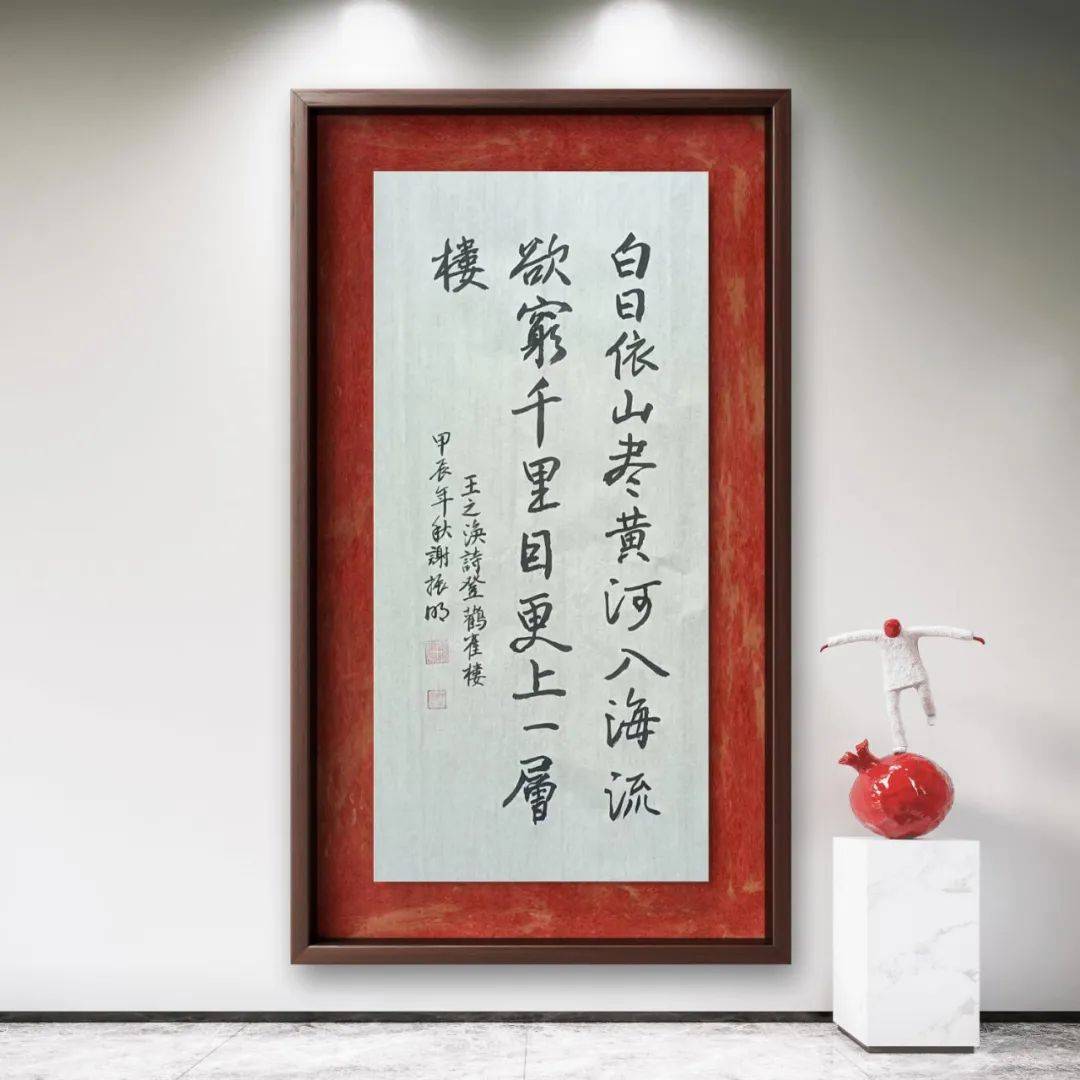 白日依山尽黄河入海流
欲窮千里目更上一層
樓
王之渙詩登鸛雀樓
甲辰年秋謝振明